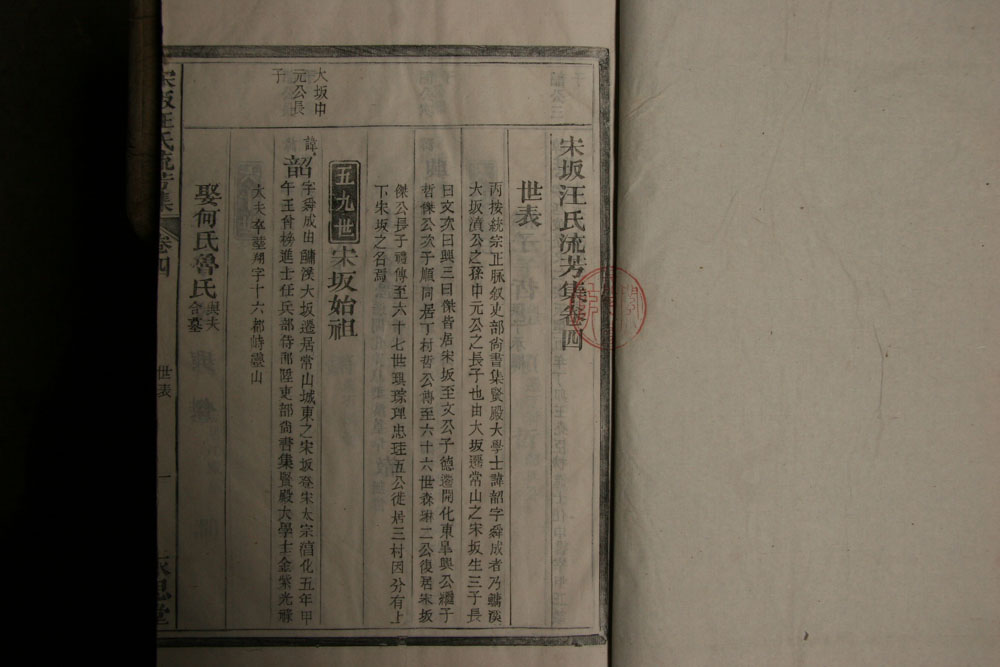 宋坂汪氏流芳集卷四
世表
丙按統宗正脉叙吏部尚書集賢殿大學士諱韶字舜成者乃鱅溪
大坂漬公之孫申元公之長子也由大坂遷常山之宋坂生三子長
曰文次曰興三曰傑皆居宋坂至文公子德遷開化東皐興公繼子
哲傑公次子順同居丁村哲公傳至六十六世森二公復居宋坂
傑公長子禮傳至六十七世琪琮理忠珪五公徙居三村因分有上
下宋坂之名焉
五九世 宋坂始祖
大坂申
元公長
子
諱韶字舜成由鱅溪大坂遷居常山城東之宋坂登宋太宗淳化五年甲
午王曾榜進士任兵部侍郎陞吏部尚書集賢殿大學士金紫光祿
大夫卒塟翔字十六都峙靈山
娶何氏魯氏 與夫合墓
宋坂汪氏流芳集 卷四 世表 一 永思堂